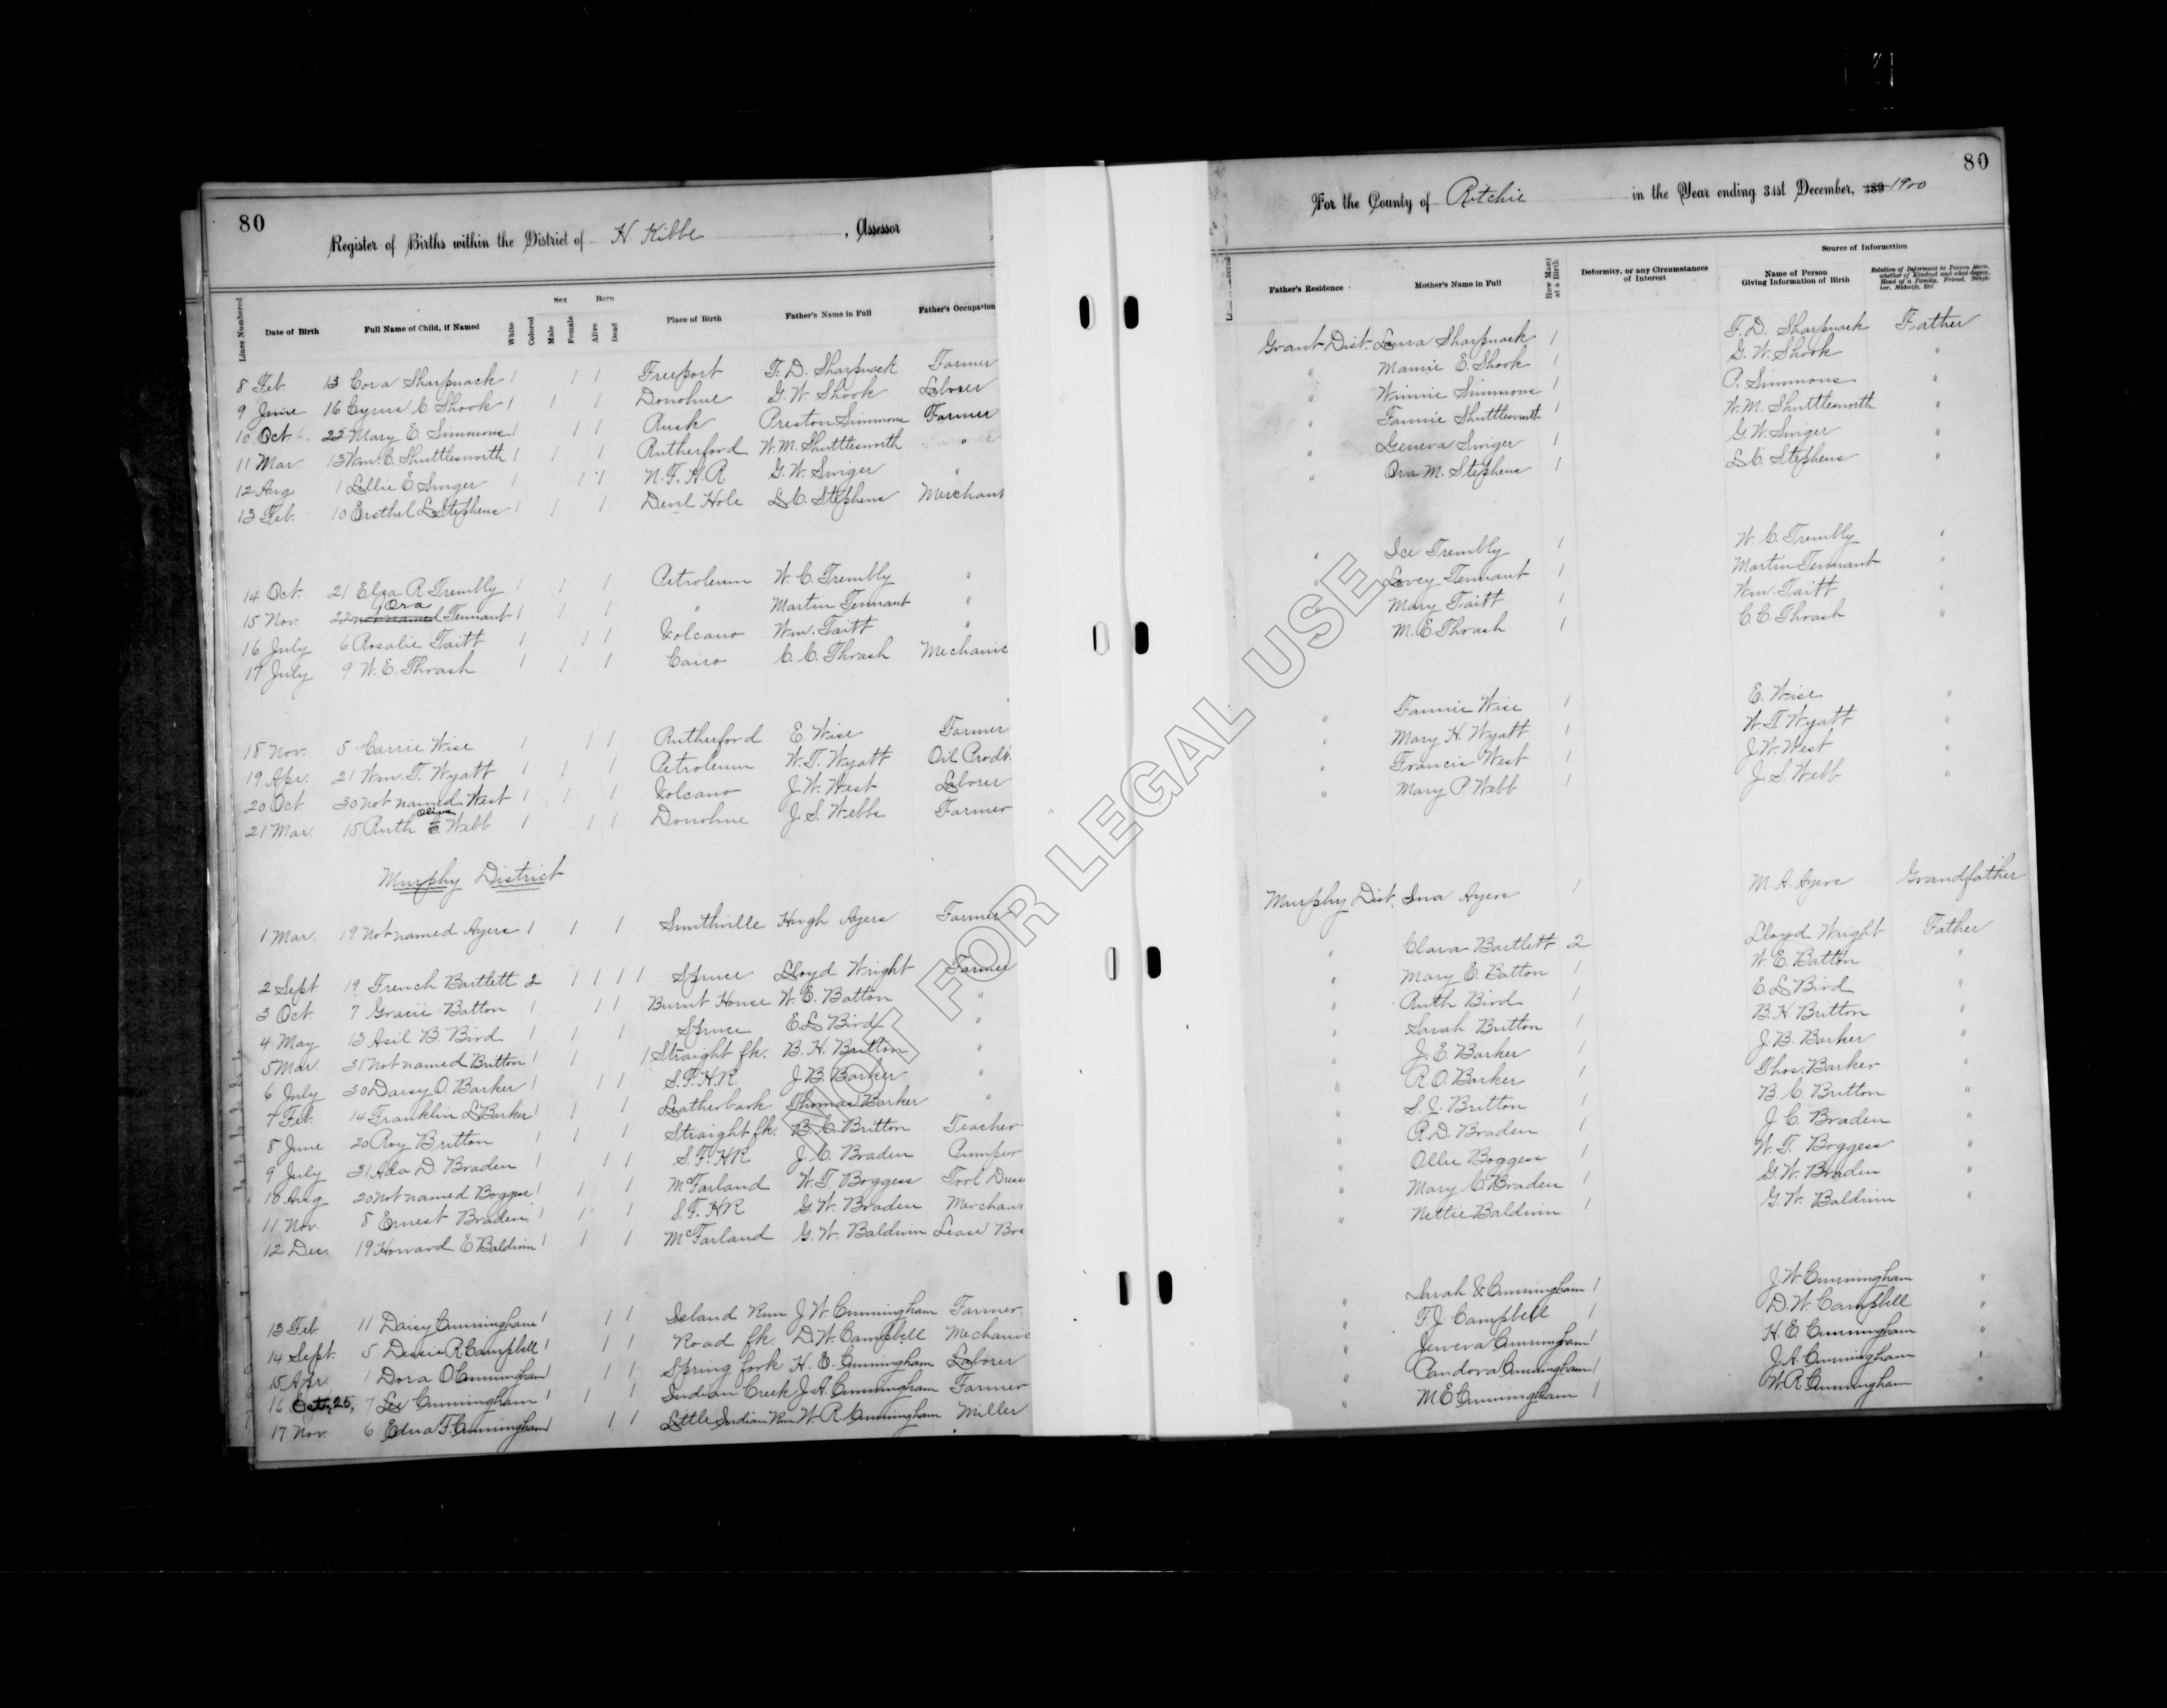 80
Register of Births within the District of H. Kibbe, Assessor
Lines Numbered Date of Birth Full Name of Child, if Named White Colored Sex Male Female Born Alive Dead Place of Birth Father's Name in Full Father's Occupation
8 Feb. 13 Cora Sharpnack 1 1 1 Freeport F. D. Sharpnack Farmer
9 June 16 Cyrus C. Shook 1 1 1 Donohue G. W. Shook Laborer
10 Oct. 22 Mary E. Simmons 1 1 1 Rusk Preston Simmons Farmer
11 Mar. 13 Wm. C. Shuttlesworth 1 1 1 Rutherford W. M. Shuttlesworth "
12 Aug 1 Lillie E. Swiger 1 1 1 N. F. H. R G. W. Swiger "
13 Feb. 10 Ersthel L Stephens 1 1 1 Devil Hole L C. Stephens Merchant
14 Oct. 21 Elza R. Trembly 1 1 1 Petroleum W. C. Trembly "
Ora
15 Nov. 22 not named Tennant 1 1 1 " Martin Tennant "
16 July 6 Rosalie Taitt 1 1 1 Volcano Wm. Taitt "
17 July 9 W. E. Thrash 1 1 1 Cairo C. C. Thrash Mechanic
18 Nov. 5 Carrie Wise 1 1 1 Rutherford E. Wise Farmer
19 Apr. 21 Wm. T. Wyatt 1 1 1 Petroleum W. T. Wyatt Oil Prodr.
20 Oct 30 not named West 1 1 1 Volcano J. W. West Laborer
Olive
21 Mar. 15 Ruth E. Webb 1 1 1 Donohue J. S. Webb Farmer
Murphy District
1 Mar. 19 Not named Ayers 1 1 1 Smithville Hugh Ayers Farmer
2 Sept 19 French Bartlett 2 1 1 1 1 Spruce Lloyd Wright Farmer
3 Oct. 7 Gracie Batton 1 1 1 Burnt House W. E. Batton "
4 May 13 Asil B. Bird 1 1 1 Spruce E. L Bird "
5 Mar. 31 Not named Britton 1 1 1 Straight fk. B. H. Britton "
6 July 30 Daisy O. Barker 1 1 1 S. F. H. R. J. B. Barker "
7 Feb. 14 Franklin L Barker 1 1 1 Leatherbark Thomas Barker "
8 June 20 Roy Britton 1 1 1 Straight fk. B. C. Britton Teacher
9 July 31 Ada D. Braden 1 1 1 S. F. H R J. C. Braden Pumper
10 Aug 20 Not named Boggess 1 1 1 McFarland W. T. Boggess Tool Dress
11 Nov. 8 Ernest Braden 1 1 1 S. F. H R G. W. Braden Merchant
12 Dec. 19 Howard E Baldwin 1 1 1 McFarland G. W. Baldwin Lease Bos
13 Feb 11 Daisy Cunningham 1 1 1 Island Run J. W. Cunningham Farmer
14 Sept. 5 R. Campbell 1 1 1 Road fk. D. W. Campbell Mechanic
15 Apr. 1 Dora O Cunningham 1 1 1 Spring fork H. E. Cunningham Laborer
16 25, 7 Lee Cunningham 1 1 1 Indian Creek J. A. Cunningham Farmer
17 Nov. 6 Edna F. Cunningham 1 1 1 Little Indian Run W. R. Cunningham Miller
80
For the County of Ritchie in the Year ending 31st December, 189 1900
Father's Residence Mother's Name in Full How Many at a Birth Deformity, or any Circumstances of Interest Source of Information Name of Person Giving Information of Birth Relation of Informant to Person Born, whether of Kindred and what degree, Head of a Family, Friend, Neighbor, Midwife, Etc.
Grant Dist. Lena Sharpnack 1 F. D. Sharpnack Father
" Mamie E. Shook 1 G. W. Shook "
" Winnie Simmons 1 P. Simmons "
" Fannie Shuttlesworth 1 W. M. Shuttlesworth "
" Geneva Swiger 1 G. W. Swiger "
" Ora M. Stephens 1 L C. Stephens "
" Ice Trembly 1 W. C. Trembly "
" Lovey Tennant 1 Martin Tennant "
Mary Taitt 1 Wm. Taitt "
M. E. Thrash 1 C. C. Thrash "
" Fannie Wise 1 E. Wise "
" Mary H. Wyatt 1 W. T. Wyatt "
" Francis West 1 J. W. West "
" Mary P. Webb 1 J. S. Webb "
Murphy Dist. Ina Ayers 1 M. A. Ayers Grandfather
" Clara Bartlett 2 Lloyd Wright Father
" Mary E. Batton 1 W. E. Batton "
" Ruth Bird 1 E. L Bird "
" Sarah Britton 1 B. H. Britton "
" J. E. Barker 1 J. B. Barker "
" R. O. Barker 1 Thos. Barker "
" S. J. Britton 1 B. C. Britton "
" R. D. Braden 1 J. C. Braden "
" Ollie Boggess 1 W. T. Boggess "
" Mary C. Braden 1 G. W. Braden "
" Nettie Baldwin 1 G. W. Baldwin "
" Sarah E. Cunningham 1 J. W. Cunningham "
" F. J. Campbell 1 D. W. Campbell "
" Jeneva Cunningham 1 H. E. Cunningham "
" Pandora Cunningham 1 J. A. Cunningham "
" M. E Cunningham 1 W. R. Cunningham "
NOT FOR LEGAL USE